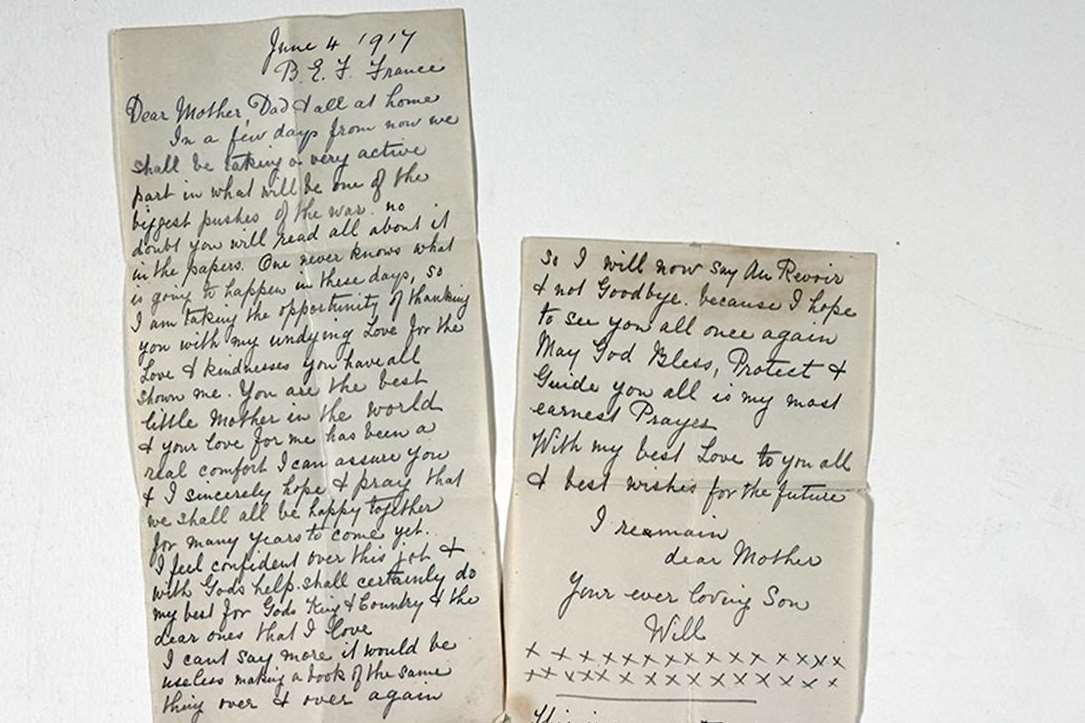 June 4 1917
B. E. F. France
Dear Mother, Dad & all at home
In a few days from now we
shall be taking a very active
part in what will be one of the
biggest pushes of the war. no
doubt you will read all about it
in the papers. One never knows what
is going to happen in these days, so
I am taking the opportunity of thanking
you with my undying Love for the
Love & kindnesses you have all
shown me. You are the best
little Mother in the world
& your love for me has been a
real comfort I can assure you
& I sincerely hope & pray that
we shall all be happy together
for many years to come yet.
I feel confident over this job &
with Gods help. shall certainly do
my best for Gods King & Country & the
dear ones that I love
I cant say more it would be
useless making a book of the same
thing over & over again
So I will now say Au Revoir
& not Goodbye. because I hope
to see you all once again
May God Bless, Protect &
Guide you all is my most
earnest Prayer
With my best Love to you all
& best wishes for the future
I remain
dear Mother
Your ever loving Son
Will
x x x x x x x x x x x x x x x x
x x x x x x x x x x x x x x x x